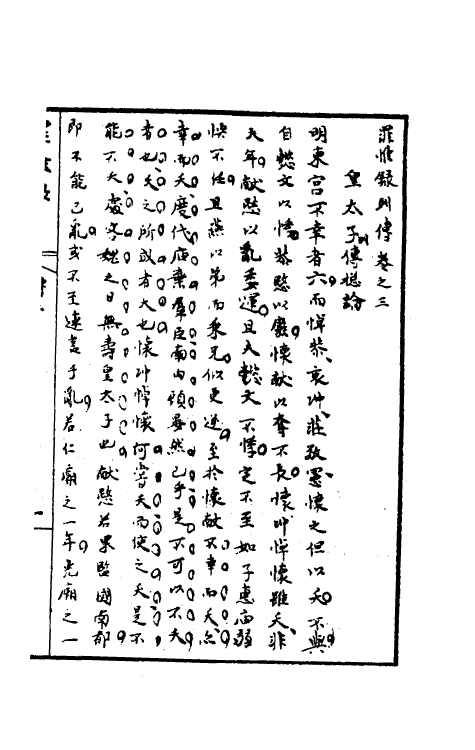 罪惟錄列傳卷之三
皇太子列傳總論
明東宮不幸者六而悼恭哀冲莊敬憲懷之但以夭不與
自懿文以憍恭愍以儼懷獻以奪不長懷冲悼懷雖夭非
天年獻愍以亂委運且夫懿文不憍定不至如子惠庙弱
快不任且燕以弟而乘兄似更逆至於懷獻不幸而夭亦
幸而夭度代庙棄羣臣南內頃晏然已乎是不可以不夭
者也夭之所或者大也懷冲悼懷何嘗夭而使之夭是不
能不夭處客魏之日無壽皇太子也獻愍若果監國南都
即不能已亂或不至速喜于亂若仁廟之一年光廟之一